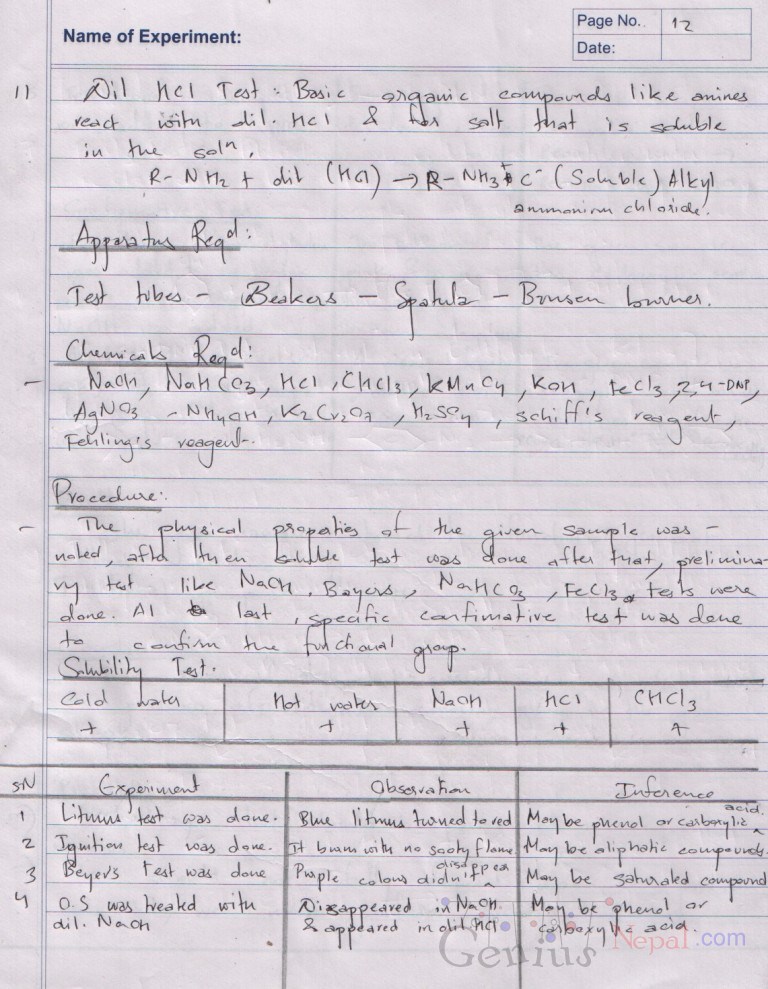 Page No. 12
Name of Experiment:
Date:
11 Dil HCl Test: Basic organic compounds like amines
react with dil. HCl & for salt that is soluble
in the solⁿ.
R- NH2 + dil (HCl) → R- NH3⁺ C⁻ (Soluble) Alkyl
ammonium chloride.
Apparatus Reqd:
Test tubes - Beakers - Spatula - Bunsen burner.
Chemicals Reqd:
- NaOH, NaHCO3, HCl, CHCl3, KMnO4, KOH, FeCl3, 2,4-DNP,
AgNO3 - NH4OH, K2Cr2O7, H2SO4, schiff's reagent,
Fehling's reagent.
Procedure:
- The physical properties of the given sample was -
noted, after then soluble test was done after that, prelimina-
ry test like NaOH, Bayers, NaHCO3, FeCl3 tests were
done. At last, specific confimative test was done
to confirm the functional group.
Solubility Test.
Cold water Hot water NaOH HCl CHCl3
+ + + + +
SN Experiment Observation Inference
1 Litmus test was done. Blue litmus turned to red May be phenol or carboxylic acid.
2 Ignition test was done. It burn with no sooty flame May be aliphatic compounds.
3 Beyer's Test was done Purple colour didn't disappear May be saturated compound
4 O.S was treated with Dissappeared in NaOH May be phenol or
dil. NaOH & appeared in dil HCl carboxylic acid.
Genius Nepal.com